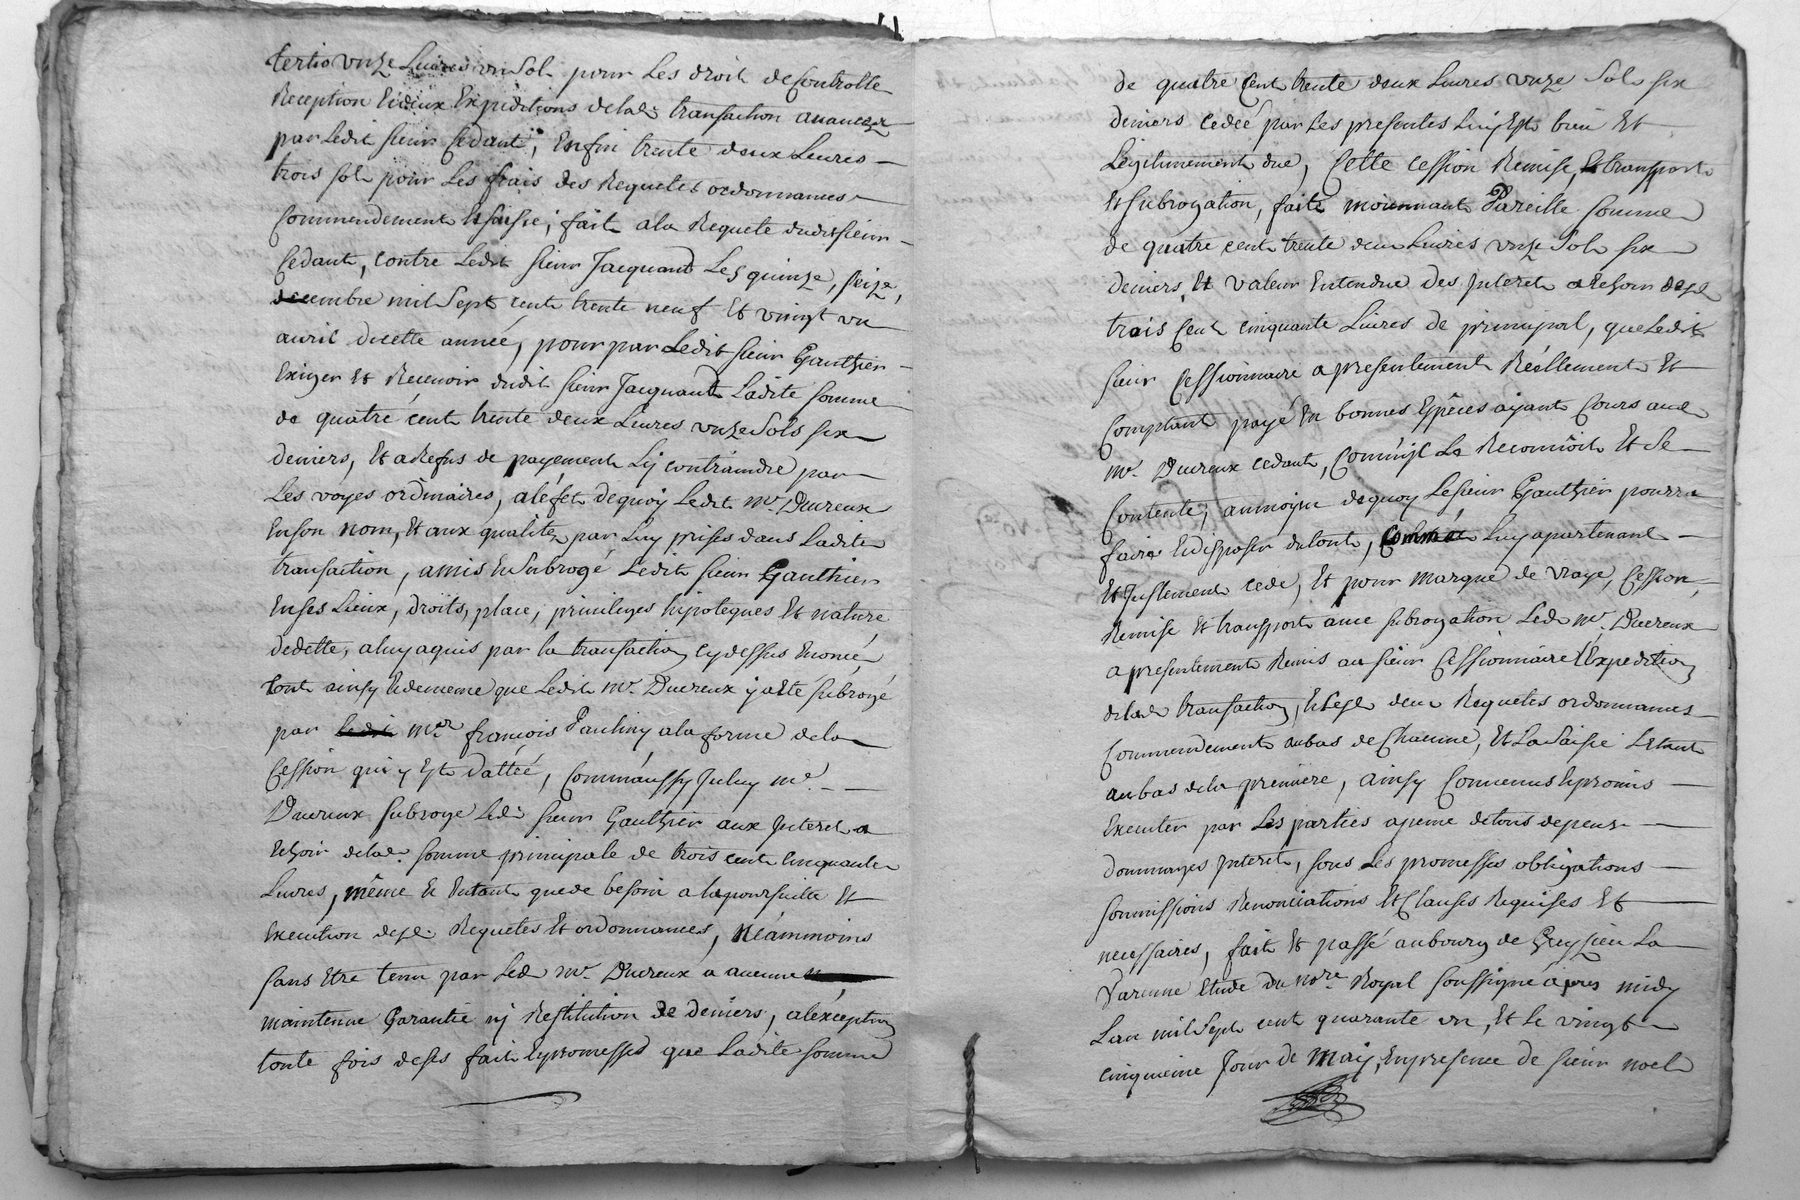 tertio vnze Livres un Sol pour Les droit de Controlle
Reception Et deux Expeditions delad: transaction avancez
par Ledit sieur Cedant, Enfin trente deux Livres
trois sol pour Les frais des Requetes ordonnances
Commendement Et saisie, fait ala Requete dudit sieur
Cedant, contre Ledit sieur Jacquand Les quinze, seize,
decembre mil Sept cent trente neuf Et vingt un
avril de cette année, pour par Ledit sieur Gauthier
Exiger Et Recevoir dudit sieur Jacquand Ladite somme
de quatre cent trente deux Livres vnze Sols six
deniers, Et a Refus de payement Ly contraindre par
Les voyes ordinaires, aléfet dequoy Ledit mr. Ducreux
En son nom, Et aux qualitez par Luy prises dans Ladite
transaction, amis Et Subrogé Ledit sieur Gauthier
En ses Lieux, droits, place, privileges hipoteques Et nature
dedette, aluy aquis par la transaction cy dessus Enoncée
tout ainsy Et de meme que Ledit mr. Ducreux y a Eté Subrogé
par mr. françois Paulin ala forme dela
Cession qui y Est dattée, Comm'aussy Iceluy mr.
Ducreux subroge Led: sieur Gauthier aux Interet a
Echoir delad: somme principale de trois cent cinquante
Livres, même Et Entant que de besoin a la poursuitte Et
Execution desd: Requetes Et ordonnances, Néammoins
sans Etre tenu par Led mr. Ducreux a aucune
maintenue Garantie ny Restitution de deniers, aléxception
toute fois deses fait Et promesses que Ladite somme
de quatre Cent trente deux Livres vnze Sols six
deniers cedeé par Les presentes Luy Est bien Et
Legitimement due, Cette cession Remise, Et transport
Et subrogation, faite moiennant Pareille somme
de quatre cent trente deux Livres vnze Sols six
deniers, Et valeur Entendue des Interet a Echoir desd
trois Cent cinquante Livres de principal, que Ledit
sieur Cessionnaire a presentement Réellement Et
Comptant payé En bonnes Espèces ayant Cours aud
mr. Ducreux cedant, Comm'il Le Reconnoit Et Se
Contente, au moyen dequoy Le sieur Gauthier pourra
faire Et disposer du tout, Comme a Luy apartenant
Et Justement cedé, Et pour marque de vraye, Cession,
Remise Et transport avec subrogation Led mr. Ducreux
a presentement Remis au sieur Cessionnaire l'Expedition
delad transaction, Et Lesd deux Requetes ordonnances
Commendement aubas de Chacune, Et La Saisie Etant
aubas dela première, ainsy Convenus Et promis
Executer par Les parties apeine detous depens
dommages Interet, sous Les promesses obligations
soumissions Renonciations Et Clauses Requises Et
necessaires, fait Et passé au bourg de Greysieu La
Varenne Etude du nore. Royal soussigné apres midy
Lan mil Sept cent quarante un, Et Le vingt
cinquieme Jour de May, En presence de sieur noel